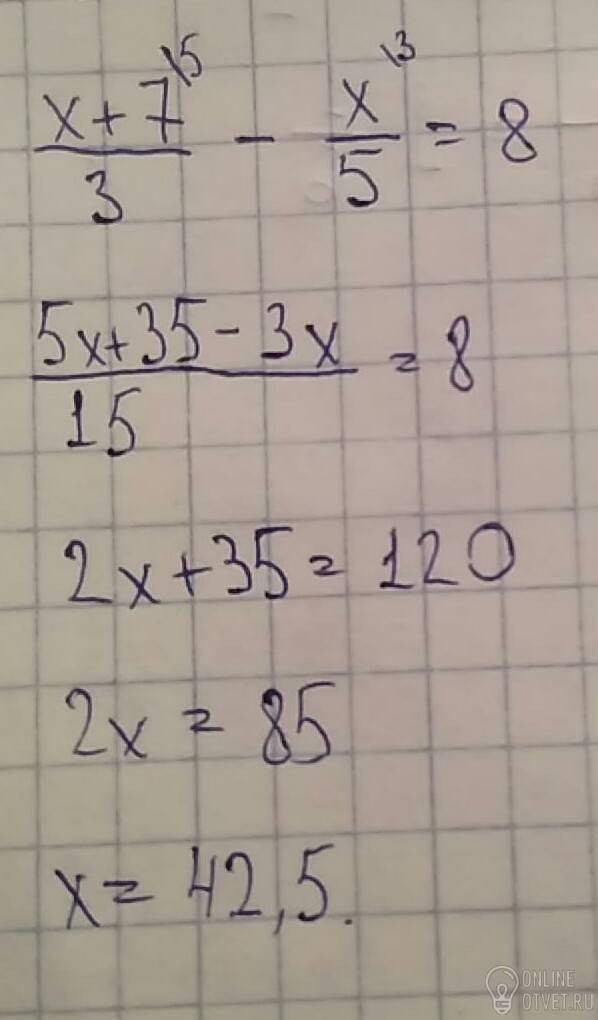 (x + 7)/3 \5 - x/5 \3 = 8
(5x + 35 - 3x)/15 = 8
2x + 35 = 120
2x = 85
x = 42,5.
ONLINE
OTVET.RU